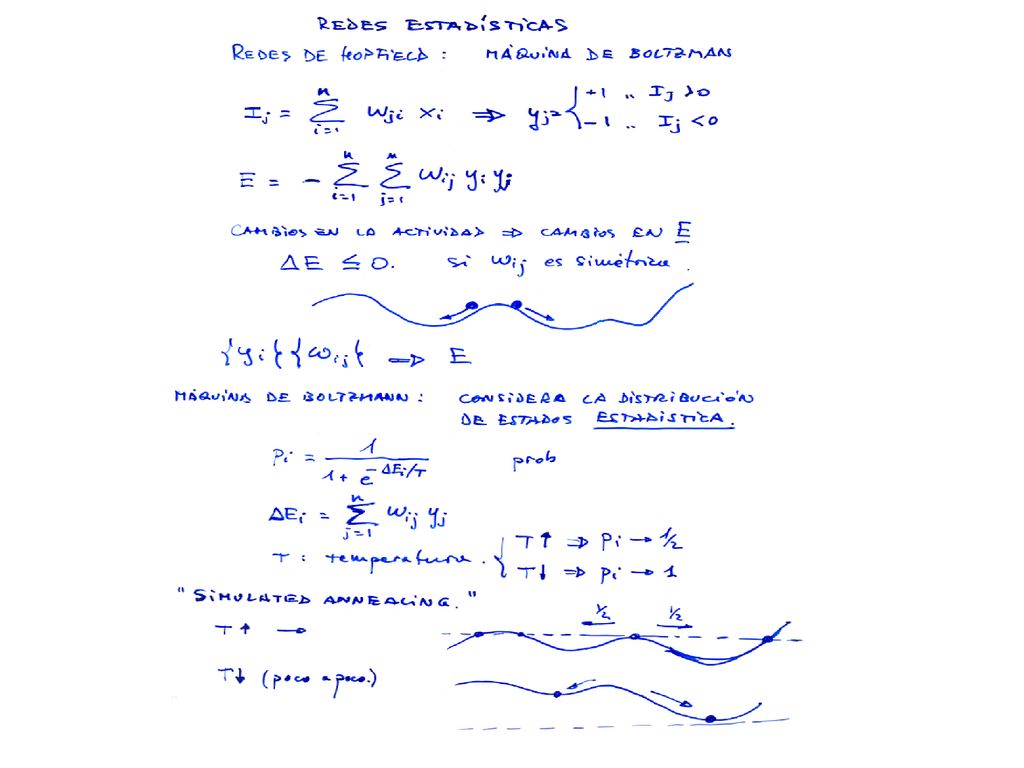 REDES ESTADÍSTICAS
REDES DE HOPFIELD : MÁQUINA DE BOLTZMAN
I_j = Σ_{i=1}^{n} w_{ji} x_i ⇒ y_j = { +1 .. I_j > 0
−1 .. I_j < 0
E = − Σ_{i=1}^{n} Σ_{j=1}^{n} w_{ij} y_i y_j
CAMBIOS EN LA ACTIVIDAD ⇒ CAMBIOS EN E
ΔE ≤ 0. si w_{ij} es simétrica.
{y_i} {w_{ij}} ⇒ E
MÁQUINA DE BOLTZMANN : CONSIDERA LA DISTRIBUCIÓN
DE ESTADOS ESTADÍSTICA.
P_i = 1 / (1 + e^{−ΔE_i/T}) prob
ΔE_i = Σ_{j=1}^{n} w_{ij} y_j
T : temperatura. { T↑ ⇒ P_i → 1/2
T↓ ⇒ P_i → 1
"SIMULATED ANNEALING."
T↑ → 1/2 1/2
T↓ (poco a poco.)